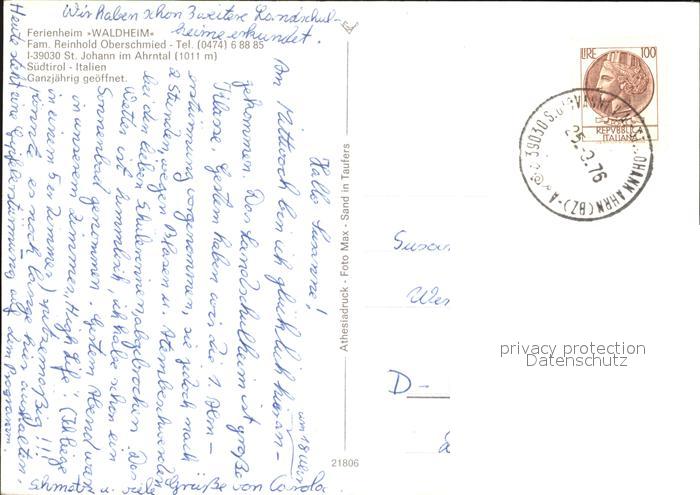 Wir haben schon 2 weitere Landschul-
heime erkundet.
Ferienheim »WALDHEIM«
Fam. Reinhold Oberschmied - Tel. (0474) 6 88 85
I-39030 St. Johann im Ahrntal (1011 m)
Südtirol - Italien
Ganzjährig geöffnet.
Hallo Susanne!
Am Mittwoch bin ich glücklich hier an-
gekommen. Das Landschulheim ist große
Klasse. Gestern haben wir die 1. Alm-
erstürmung vorgenommen, sie jedoch nach
2 Stunden wegen Blasen u. Atembeschwerden
bei den lieben Schülerinnen abgebrochen. Das
Wetter ist himmlisch, ich habe schon ein
Sonnenbad genommen. Gestern Abend war
in unserem Zimmer „High Life“. (Ich liege
in einem 5 er Zimmer) spitzenmäßig!!! 
könnte es noch lange hier aushalten.
Heute steht eine Gipfelstürmung auf dem Programm.
um 18 Uhr
Schmatz u. viele Grüße von Carola.
Athesiadruck - Foto Max - Sand in Taufers
21806
LIRE 100
REPVBBLICA
ITALIANA
39030 S. GIOVANNI
JOHANN AHRN (BZ) - A
76
Susan
Wer
D -
privacy protection
Datenschutz